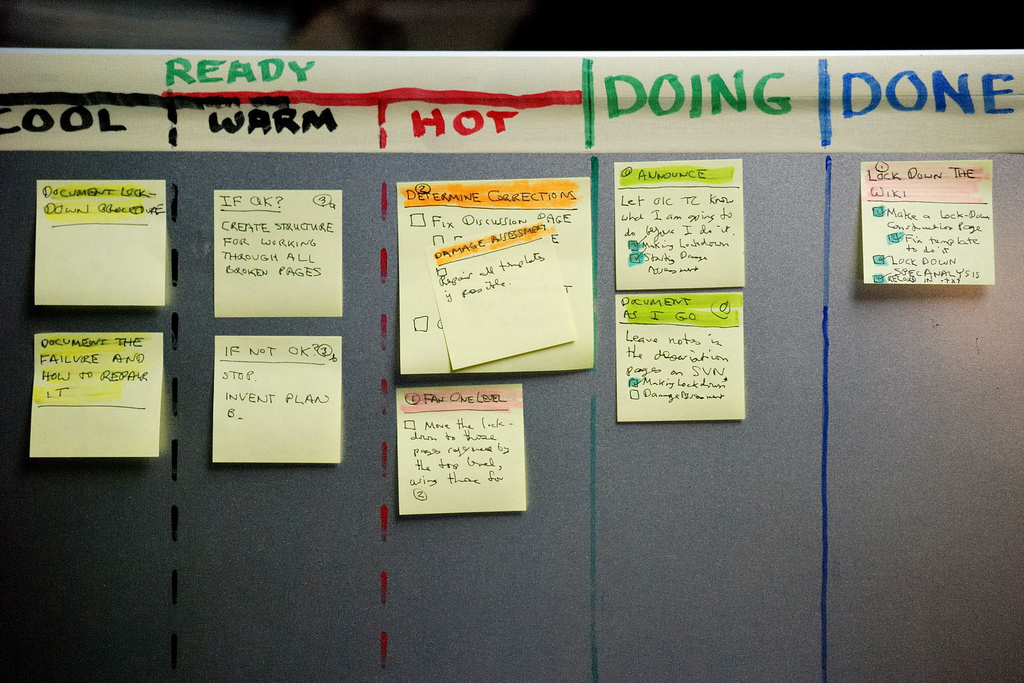 READY
COOL
WARM
HOT
DOING
DONE
DOCUMENT LOCK-
DOWN PROCEDURE
DOCUMENT THE
FAILURE AND
HOW TO REPAIR
IT
IF OK?
CREATE STRUCTURE
FOR WORKING
THROUGH ALL
BROKEN PAGES
IF NOT OK?
STOP.
INVENT PLAN
B_
② DETERMINE CORRECTIONS
FIX DISCUSSION PAGE
DAMAGE ASSESSMENT
Repair all templates
if possible.
① FAN ONE LEVEL
Move the lock-
down to those
pages referenced by
the top level,
using those for
②
⓪ ANNOUNCE
Let OIC TZ know
what I am going to
do before I do it.
Making Lockdown
Starting Damage
Assessment
DOCUMENT
AS I GO ⓪
Leave notes in
the description
pages on SVN
Making Lockdown
Damage Assessment
① LOCK DOWN THE
WIKI
Make a Lock-Down
Construction Page
Fix template
to do it
LOCK DOWN
SPECANALYSIS
RECORD IN .TXT